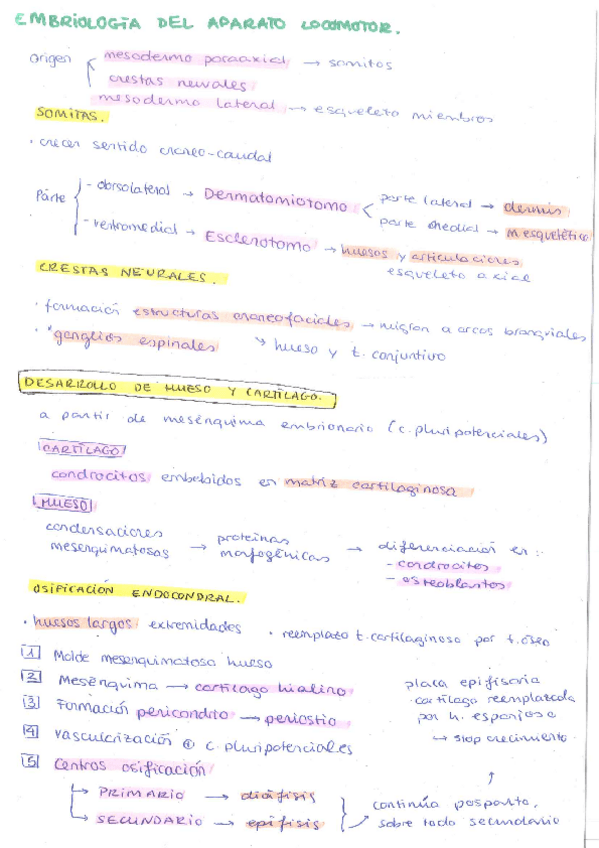 EMBRIOLOGÍA DEL APARATO LOCOMOTOR.
origen
mesodermo paraaxial → somitos
crestas neurales
mesodermo lateral → esqueleto miembros
SOMITAS.
· crecer sentido craneo-caudal
Parte
- dorsolateral → Dermatomiotomo
parte lateral → dermis
parte medial → m esquelético
- ventromedial → Esclerotomo → huesos y articulaciones
esqueleto axial
CRESTAS NEURALES.
· formación estructuras craneofaciales → migran a arcos branquiales
· " ganglios espinales ↘ hueso y t. conjuntivo
DESARROLLO DE HUESO Y CARTÍLAGO.
a partir de mesénquima embrionario (c. pluripotenciales)
CARTÍLAGO
condrocitos embebidos en matriz cartilaginosa
HUESO
condensaciones
mesenquimatosas → proteinas
morfogénicas → diferenciación en :
- condrocitos
- osteoblastos
OSIFICACIÓN ENDOCONDRAL.
· huesos largos extremidades · reemplazo t. cartilaginoso por t. óseo
1 Molde mesenquimatoso hueso
2 Mesénquima → cartílago hialino
3 Formación pericondrio → periostio
4 Vascularización ⊕ c. pluripotenciales
5 Centros osificación
placa epifisaria
cartílago reemplazada
por h. esponjoso
→ stop crecimiento
↑
↳ PRIMARIO → diáfisis
↳ SECUNDARIO → epífisis
continúa posparto,
sobre todo secundario